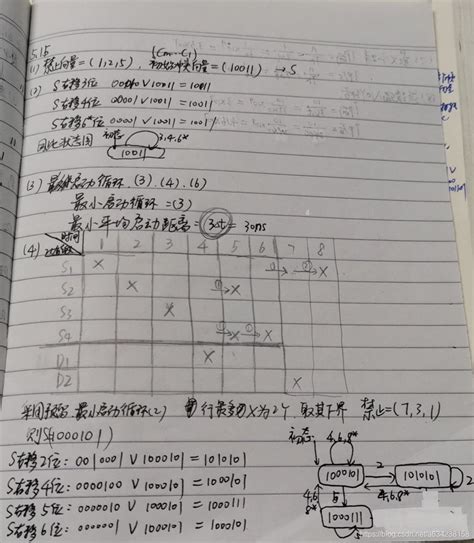 5.15
(Cm...C1)
(1) 禁止向量=(1,2,5), 初始冲突向量=(10011) → S
(2) S右移3位 00010 V 10011 = 10011
S右移4位 00001 V 10011 = 10011
S右移6*位 00000 V 10011 = 10011
因此状态图 初态 3,4,6*
10011
(3) 启动循环 (3).(4).(6)
最小启动循环=(3)
最小平均启动距离=3Δt=30ns
(4) 时间 1 2 3 4 5 6 7 8
S1 X → → X
S2 X → X
S3 X
S4 → X → X
D1 X
D2 X
采用预留 最小启动循环(2) 行最多X为2个 取其下界 禁止=(7,3,1)
则S(1000101)
S右移2位: 0010001 V 1000101 = 1010101
S右移4位: 0000100 V 1000101 = 1000101
S右移5位: 0000010 V 1000101 = 1000111
S右移6位: 0000001 V 1000101 = 1000101
初态 4,6,8*
1000101 2 1010101
4,6,8* 5 4,6,8* 2
1000111